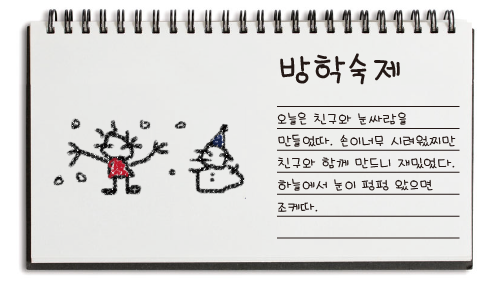 방학숙제
오늘은 친구와 눈싸람을
만들었따. 손이너무 시려웠찌만
친구와 함께 만드니 재밌었다.
하늘에서 눈이 펑펑 왔으면
조케따.